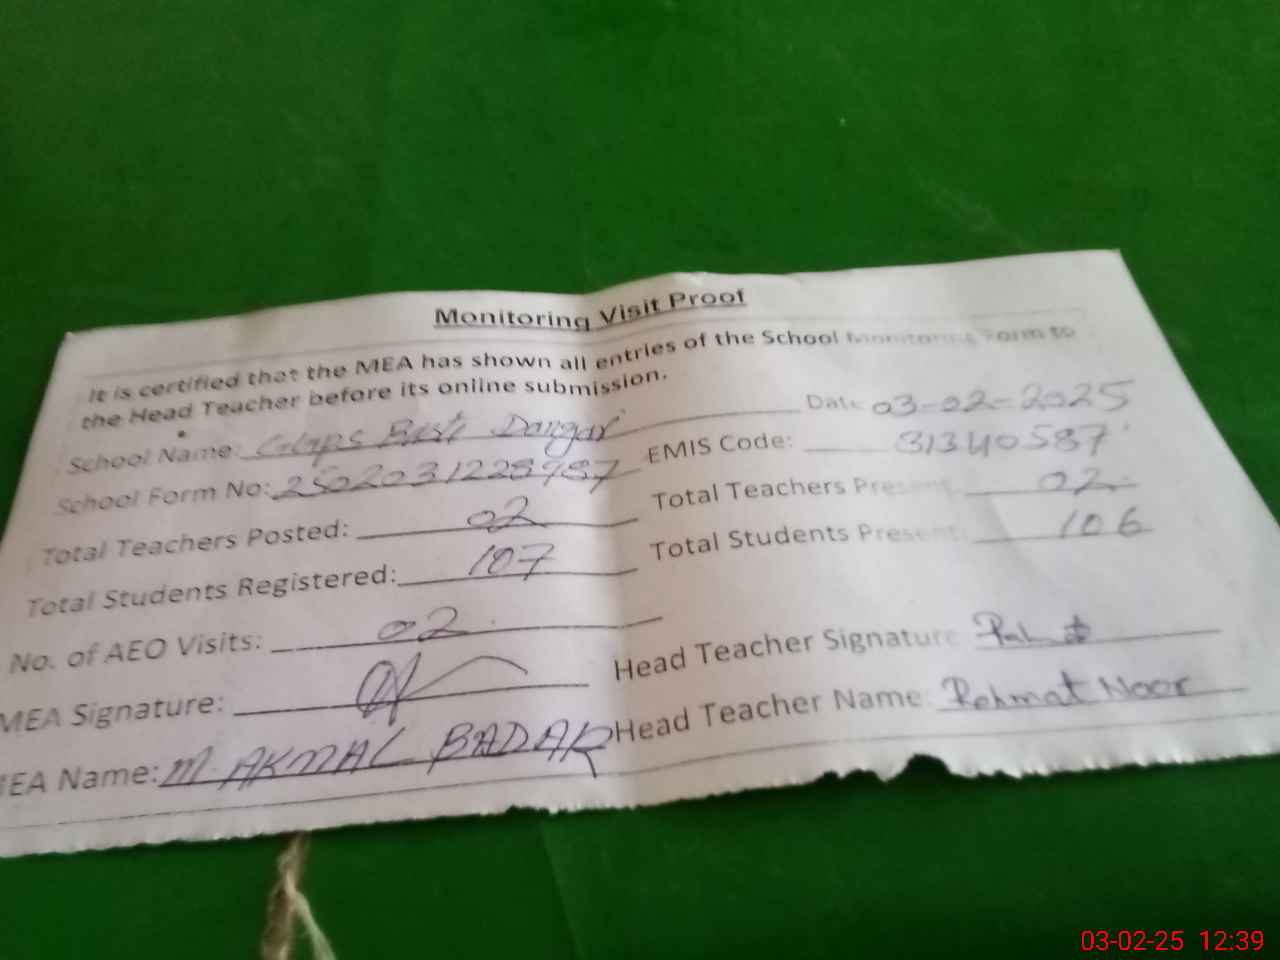 Monitoring Visit Proof
It is certified that the MEA has shown all entries of the School Monitoring Form to
the Head Teacher before its online submission.
School Name: Ggps Basti Dangar Date 03-02-2025
School Form No: EMIS Code: 31340587
Total Teachers Posted: 02 Total Teachers Present: 02
Total Students Registered: 107 Total Students Present: 106
No. of AEO Visits: 02
MEA Signature: Head Teacher Signature
MEA Name: M. AKMAL BADAR Head Teacher Name: Rehmat Noor
03-02-25 12:39